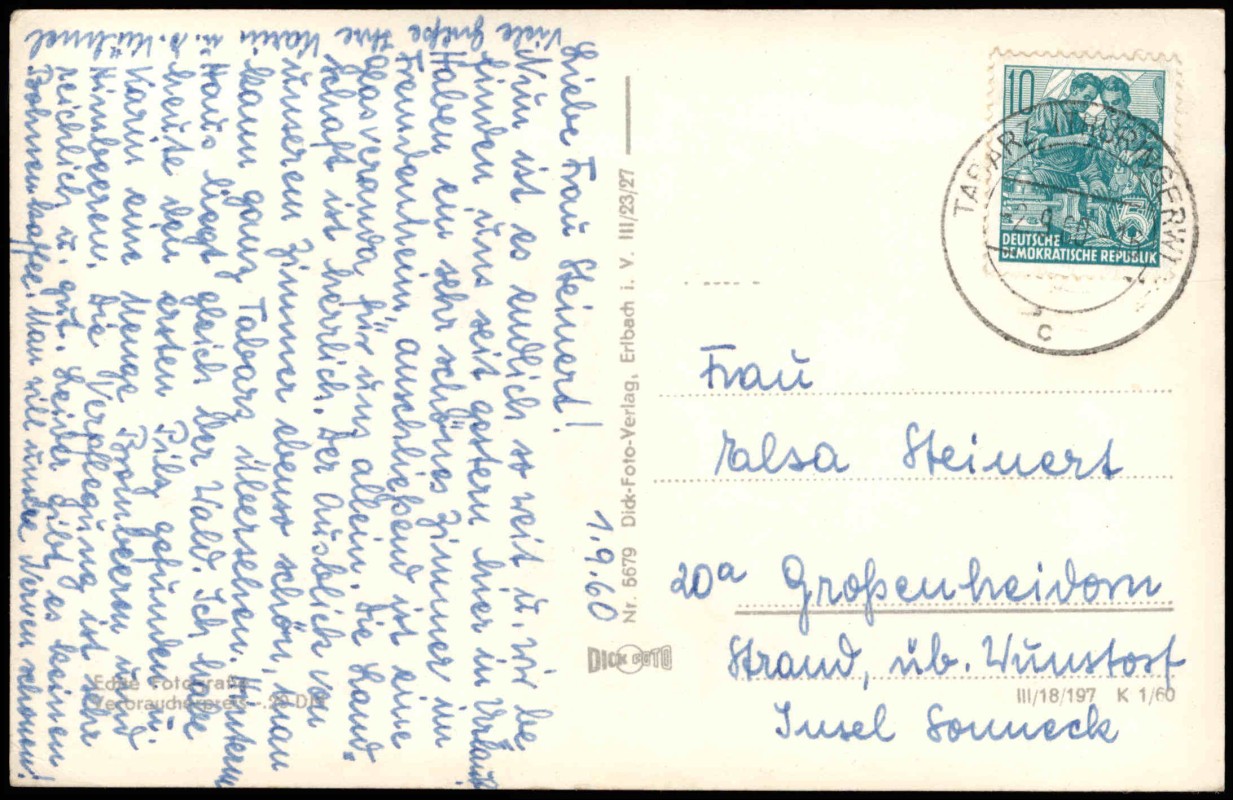 Liebe Frau Steinert! 1.9.60
Nun ist es endlich so weit u. wir be
finden uns seit gestern hier in Urlaub
Haben ein sehr schönes Zimmer im
Fremdenheim, anschließend ist eine
Glasveranda für uns allein. Die Land-
schaft ist herrlich. Der Ausblick von
unseren Zimmer ebenso schön, man
kann ganz Tabarz übersehen. Hinterm
Haus liegt gleich der Wald. Ich habe
heute den ersten Pilz gefunden u.
Karin eine Menge Brombeeren und
Himbeeren. Die Verpflegung ist sehr
reichlich u. gut. Leider gibt es keinen
Bohnenkaffee. Man will unsere Nerven schonen!
Viele Grüße Ihre Karin u. S. Kühnel
Echte Fotografie
Verbraucherpreis -.20 DM
Nr. 5679 Dick-Foto-Verlag, Erlbach i. V. III/23/27
DICK FOTO
10
5
DEUTSCHE
DEMOKRATISCHE REPUBLIK
TABARZ THÜRINGERWALD
2.9.60
c
Frau
Steinert
20a Großenheidorn
Strand, üb. Wunstorf
Insel Sonneck
III/18/197 K 1/60